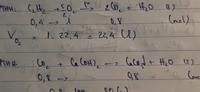 PTHH: C₂H₂ + O₂ → 2CO₂ + H₂O (1)
0,4 → 1 0,8 (mol)
V O₂ = 1. 22,4 = 22,4 (l)
PTHH: CO₂ + Ca(OH)₂ → CaCO₃ + H₂O (2)
0,8 → 0,8